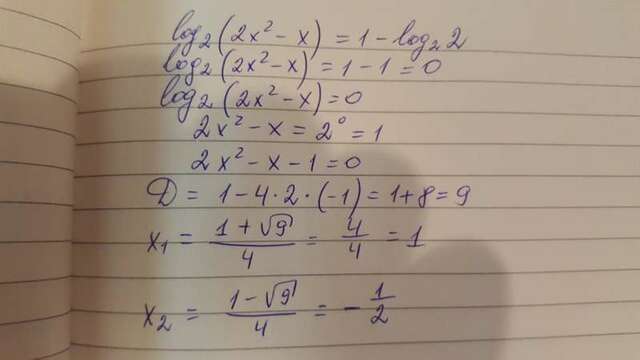 log₂(2x² - x) = 1 - log₂2
log₂(2x² - x) = 1 - 1 = 0
log₂(2x² - x) = 0
2x² - x = 2⁰ = 1
2x² - x - 1 = 0
D = 1 - 4 · 2 · (-1) = 1 + 8 = 9
x₁ = (1 + √9)/4 = 4/4 = 1
x₂ = (1 - √9)/4 = - 1/2